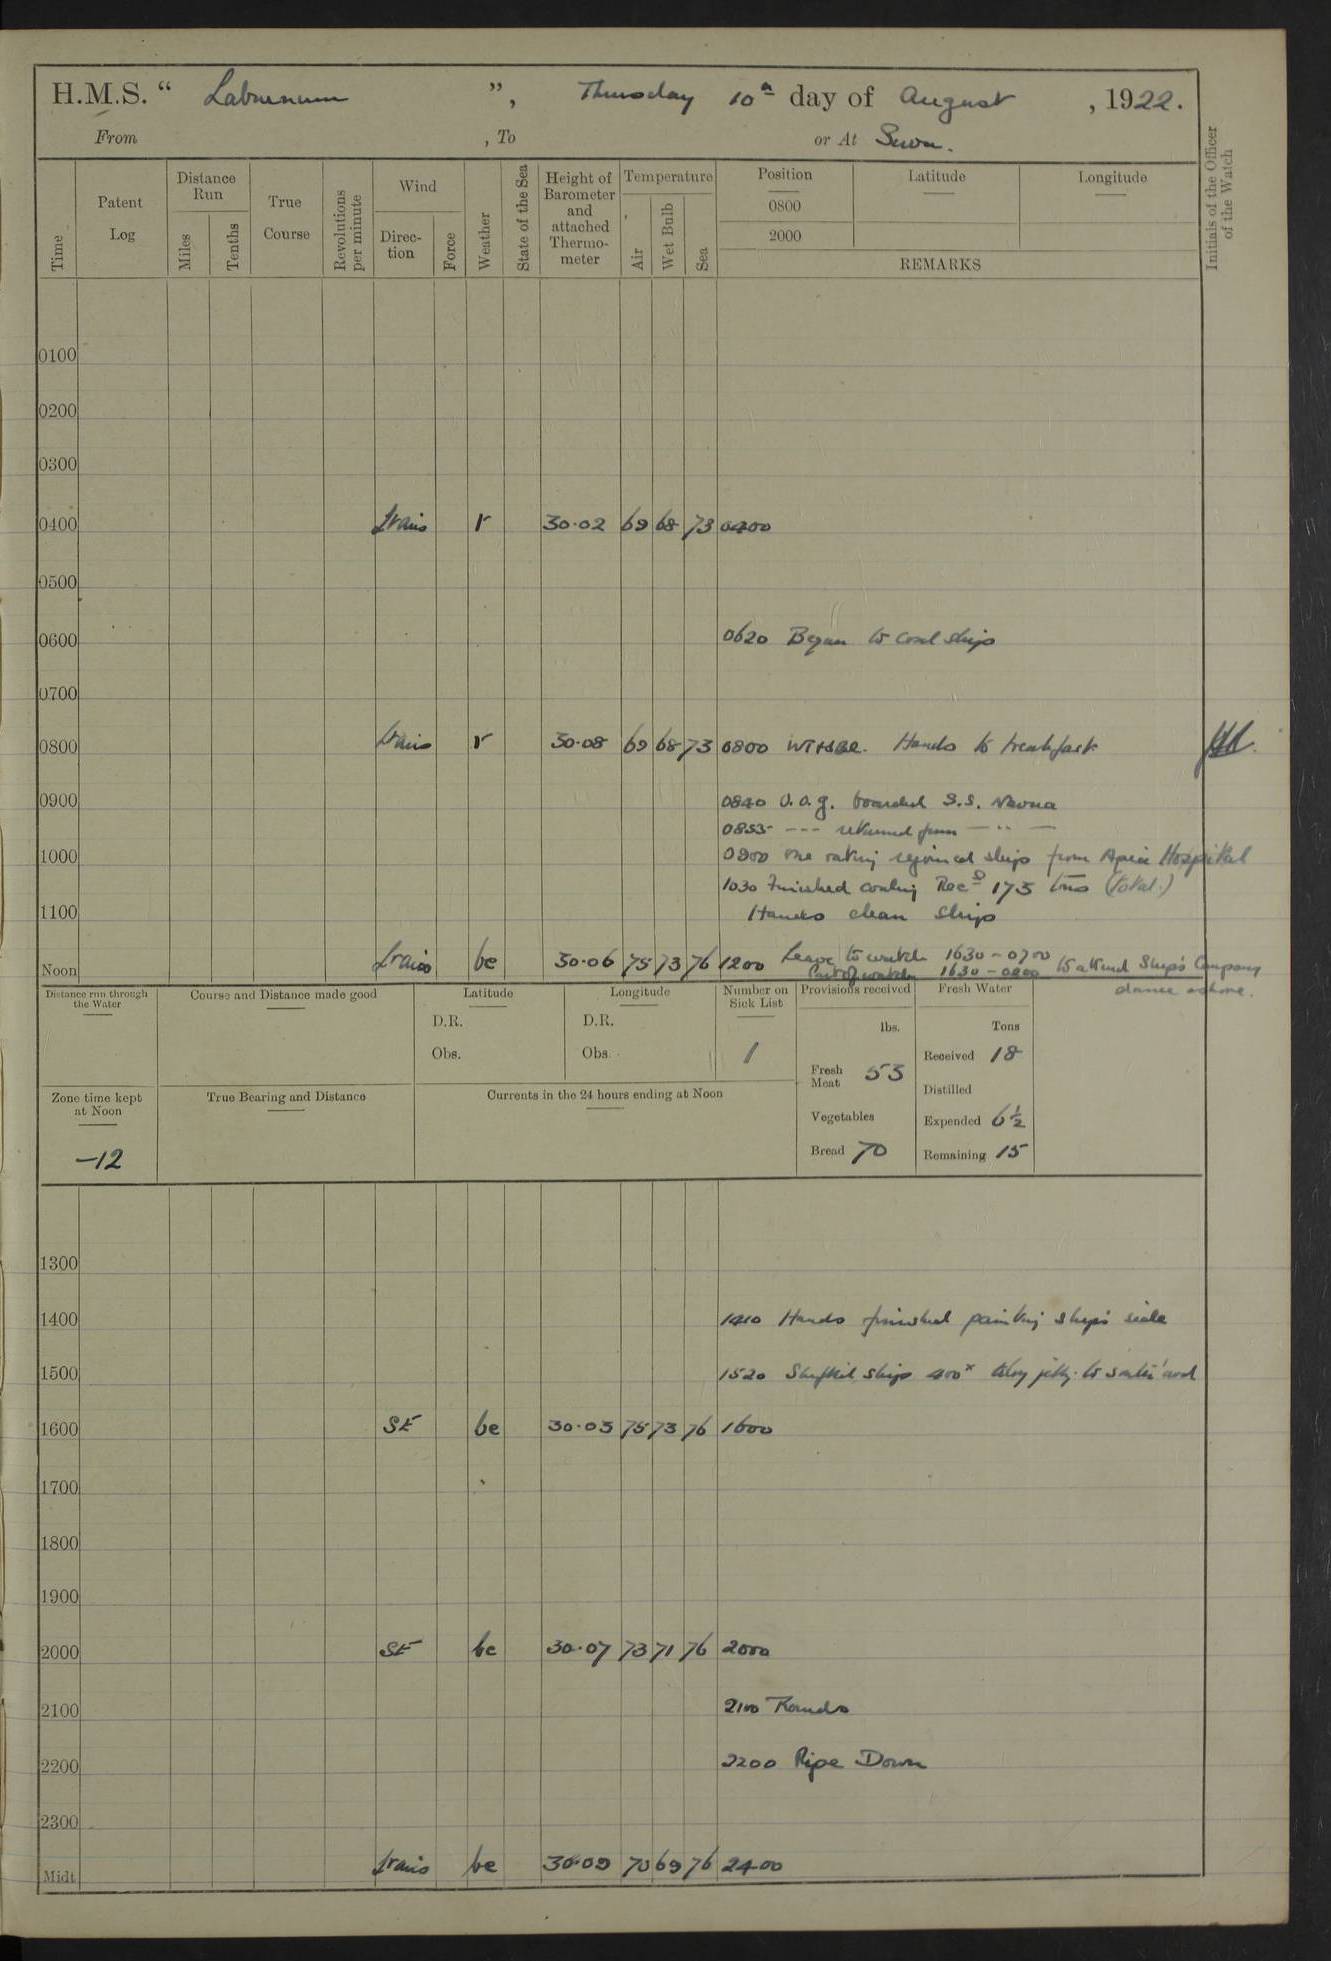 H.M.S. “ Laburnum ”, Thursday 10th day of August , 1922.
From , To or At Suva.
Time
Patent Log
Distance Run
Miles
Tenths
True Course
Revolutions per minute
Wind
Direction
Force
Weather
State of the Sea
Height of Barometer and attached Thermometer
Temperature
Air
Wet Bulb
Sea
Position
0800
2000
Latitude
Longitude
REMARKS
Initials of the Officer of the Watch
0100
0200
0300
0400 r 30·02 69 68 73 0400
0500
0600
0620 Began to coal ship
0700
0800 r 30·08 69 68 73 0800 Hands to breakfast
0900
0840 O.O.G. boarded S.S. Navua
0855 --- returned from — ·· —
1000
0900 One rating rejoined ship from Apia Hospital
1030 Finished coaling Recd 175 tons (total.)
1100
Hands clean ship
Noon be 30·06 75 73 76 1200 Leave to watch 1630 - 0700
Part of watch 1630 - 0800 to attend Ship's Company
dance ashore.
Distance run through the Water
Course and Distance made good
Latitude
D.R.
Obs.
Longitude
D.R.
Obs.
Number on Sick List
1
Provisions received
lbs.
Fresh Meat 53
Vegetables
Bread 70
Fresh Water
Tons
Received 18
Distilled
Expended 6½
Remaining 15
Zone time kept at Noon
-12
True Bearing and Distance
Currents in the 24 hours ending at Noon
1300
1400
1410 Hands finished painting ship's side
1500
1520 Shifted ship 400x along jetty to south'ard
1600 SE be 30·03 75 73 76 1600
1700
1800
1900
2000 SE bc 30·07 73 71 76 2000
2100
2100 Rounds
2200
2200 Pipe Down
2300
Midt. be 30·09 70 69 76 2400